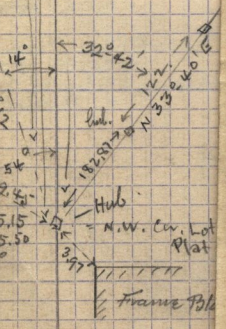 14°
32°42'
N 33°40'
122.
hub.
182.87
54
Hub
= N.W. Cor. Lot
Plat
5.15
5.50
3.97
Frame Bld